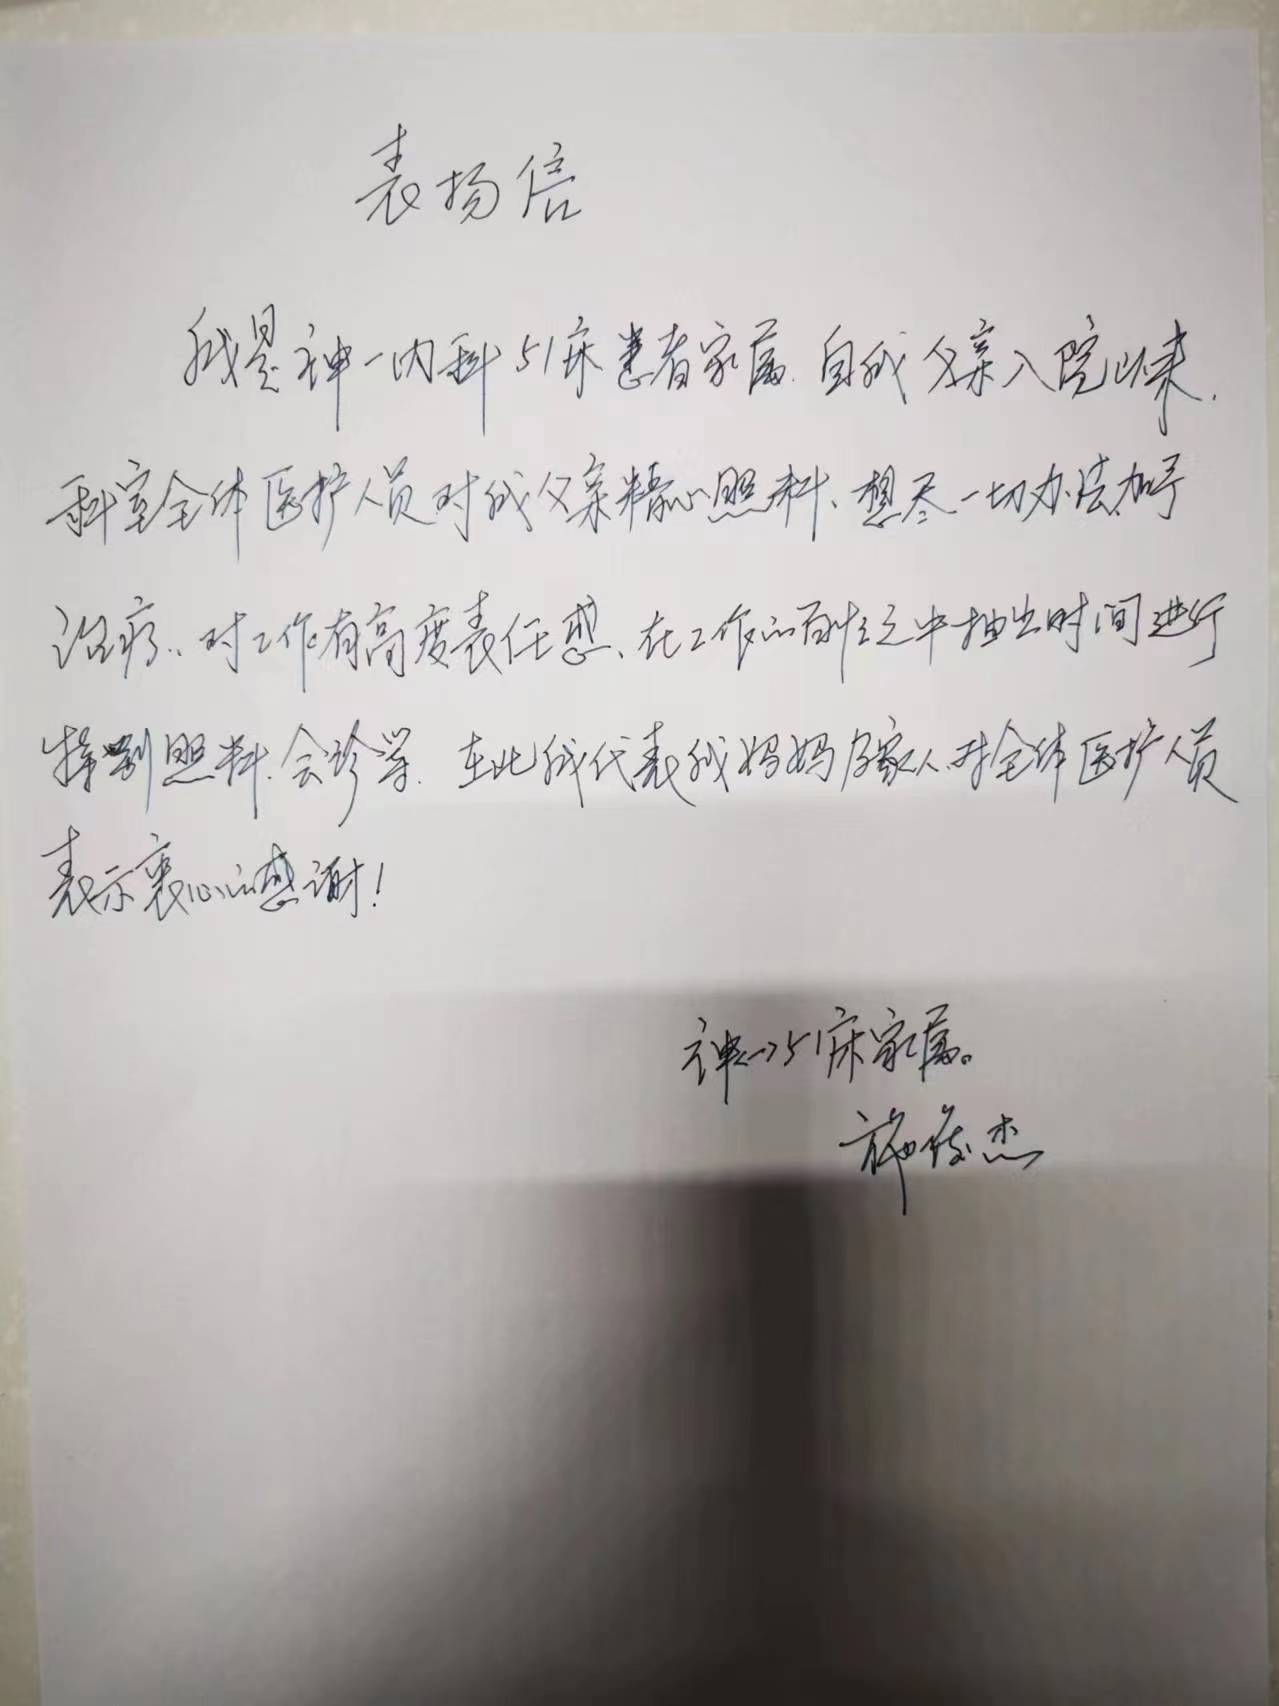 表扬信
我是神一内科51床患者家属.自我父亲入院以来.
科室全体医护人员对我父亲精心照料、想尽一切办法加予
治疗、对工作有高度责任感、在工作的百忙之中抽出时间进行
特别照料.会诊等.在此我代表我妈妈及家人对全体医护人员
表示衷心的感谢!
神一51床家属。
施俊杰